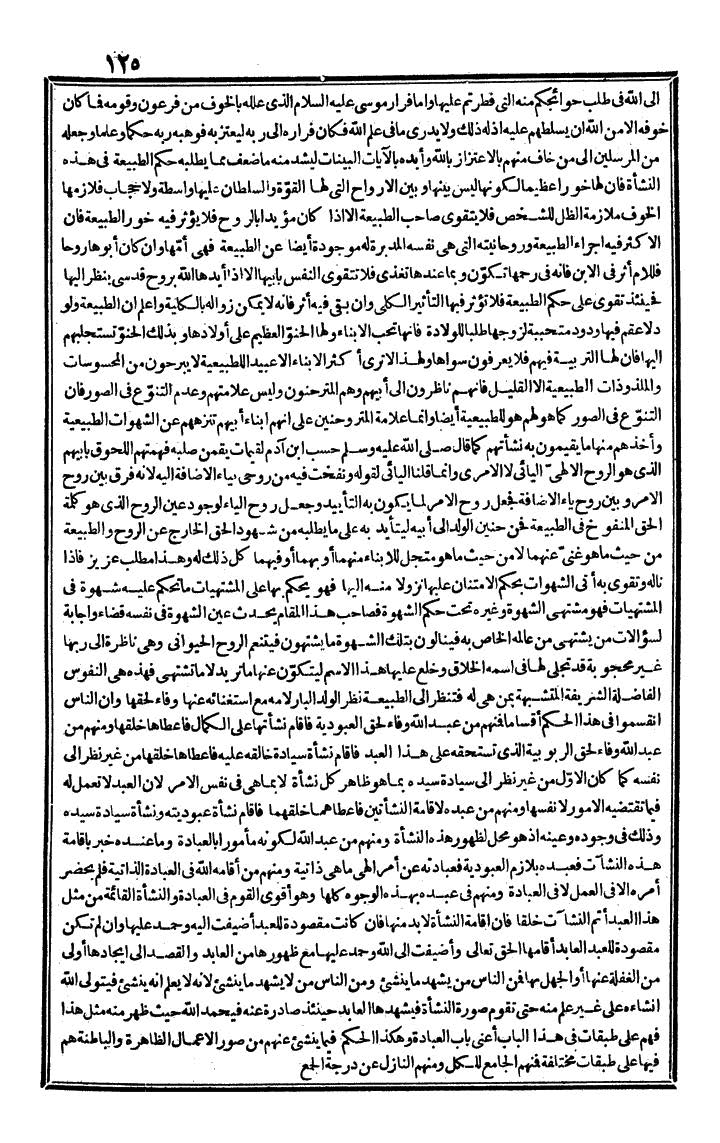 ١٢٥
الى الله فى طلب حوائجكم منه التى فطرتم عليها واما فرار موسى عليه السلام الذى علله بالخوف من فرعون وقومه فما كان
خوفه الا من الله ان يسلطهم عليه اذ له ذلك ولا يدرى ما فى علم الله فكان فراره الى ربه ليعتز به فوهبه ربه حكما وعلما وجعله
من المرسلين الى من خاف منهم بالاعتزاز بالله وأيده بالآيات البينات ليشد منه ما ضعف مما يطلبه حكم الطبيعة فى هذه
النشأة فان لها خورا عظيما لكونها ليس بينها وبين الارواح التى لها القوّة والسلطان عليها واسطة ولا حجاب فلازمها
الخوف ملازمة الظل للشخص فلا يتقوى صاحب الطبيعة الا اذا كان مؤيدا بالروح فلا يؤثر فيه خور الطبيعة فان
الاكثر فيه اجراء الطبيعة وروحانيته التى هى نفسه المدبرة له موجودة أيضا عن الطبيعة فهى أمّها وان كان أبوها روحا
فللام أثر فى الابن فانه فى رحمها تكوّن وبما عندها تغذى فلا تتقوى النفس بأبيها الا اذا أيدها الله بروح قدسى ينظر اليها
فحينئذ تقوى على حكم الطبيعة فلا تؤثر فيها التأثير الكلى وان بقى فيه أثر فانه لا يمكن زواله بالكلية واعلم ان الطبيعة ولو
د لا عقم فيها ودود متحببة لزوجها طلبا للولادة فانها تحب الابناء ولها الحنوّ العظيم على أولادها وبذلك الحنوّ تستجلبهم
اليها فان لها التربية فيهم فلا يعرفون سواها ولهذا لا ترى أكثر الابناء الا عبيد اللطبيعة لا يبرحون من المحسوسات
والملذوذات الطبيعية الا القليل فانهم ناظرون الى أبيهم وهم المتروحنون وليس علامتهم وعدم التنوّع فى الصور فان
التنوّع فى الصور كما هو لهم هو للطبيعية أيضا وانما علامة المتروحنين على انهم أبناء أبيهم تنزههم عن الشهوات الطبيعية
وأخذهم منها ما يقيمون به نشأتهم كما قال صلى الله عليه وسلم حسب ابن آدم لقيمات يقمن صلبه فهمتهم اللحوق بأبيهم
الذى هو الروح الالهىّ اليائى لا الامرى وانما قلنا اليائى لقوله ونفخت فيه من روحى بياء الاضافة اليه لانه فرق بين روح
الامر وبين روح ياء الاضافة فجعل روح الامر لما يكون به التأييد وجعل روح الياء لوجود عين الروح الذى هو كلمة
الحق المنفوخ فى الطبيعة فمن حنين الولد الى أبيه ليتأيد به على ما يطلبه من شهود الحق الخارج عن الروح والطبيعة
من حيث ما هو غنىّ عنهما لا من حيث ما هو متجل للابناء منهما أو بهما أو فيهما كل ذلك له وهذا مطلب عزيز فاذا
ناله وتقوى به أتى الشهوات بحكم الامتنان عليها نزولا منه اليها فهو يحكم بها على المشتهيات ما تحكم عليه شهوة فى
المشتهيات فهو مشتهى الشهوة وغيره تحت حكم الشهوة فصاحب هذا المقام يحدث عين الشهوة فى نفسه قضاء واجابة
لسؤالات من يشتهى من عالمه الخاص به فينالون بتلك الشهوة ما يشتهون فيتنعم الروح الحيوانى وهى ناظرة الى ربها
غير محجوبة قد تجلى لها فى اسمه الخلاق وخلع عليها هذا الاسم ليتكوّن عنها ما تريد لا ما تشتهى فهذه هى النفوس
الفاضلة الشريفة المتشبهة بمن هى له فتنظر الى الطبيعة نظر الولد البار لامه مع استغنائه عنها وفاء لحقها وان الناس
انقسموا فى هذا الحكم أقساما فمنهم من عبد الله وفاء لحق العبودية فاقام نشأتها على الكمال فاعطاها خلقها ومنهم من
عبد الله وفاء لحق الربوبية الذى تستحقه على هذا العبد فاقام نشأة سيادة خالقه عليه فاعطاها خلقها من غير نظر الى
نفسه كما كان الاوّل من غير نظر الى سيادة سيده بما هو ظاهر كل نشأة لا بما هى فى نفس الامر لان العبد لا تعمل له
فيما تقتضيه الامور لانفسها ومنهم من عبده لاقامة النشأتين فاعطاهما خلقهما فاقام نشأة عبوديته ونشأة سيادة سيده
وذلك فى وجوده وعينه اذ هو محل لظهور هذه النشأة ومنهم من عبد الله لكونه مأمورا بالعبادة وما عنده خبر باقامة
هذه النشآت فعبده بلازم العبودية فعبادته عن أمر الهى ما هى ذاتية ومنهم من أقامه الله فى العبادة الذاتية فلم يحضر
أمره الا فى العمل لا فى العبادة ومنهم فى عبده بهذه الوجوه كلها وهو أقوى القوم فى العبادة والنشأة القائمة من مثل
هذا العبد أتم النشآت خلقا فان اقامة النشأة لا بد منها فان كانت مقصودة للعبد أضيفت اليه وحمد عليها وان لم تكن
مقصودة للعبد العابد أقامها الحق تعالى وأضيفت الى الله وحمد عليها مع ظهورها من العابد والقصد الى ايجادها أولى
من الغفلة عنها أو الجهل بها فمن الناس من يشهد ما ينشئ ومن الناس من لا يشهد ما ينشئ لانه لا يعلم انه ينشئ فيتولى الله
انشاءه على غير علم منه حتى تقوم صورة النشأة فيشهدها العابد حينئذ صادرة عنه فيحمد الله حيث ظهر منه مثل هذا
فهم على طبقات فى هذا الباب أعنى باب العبادة وهكذا الحكم فيما ينشئ عنهم من صور الاعمال الظاهرة والباطنة هم
فيها على طبقات مختلفة فمنهم الجامع للكل ومنهم النازل عن درجة الجمع